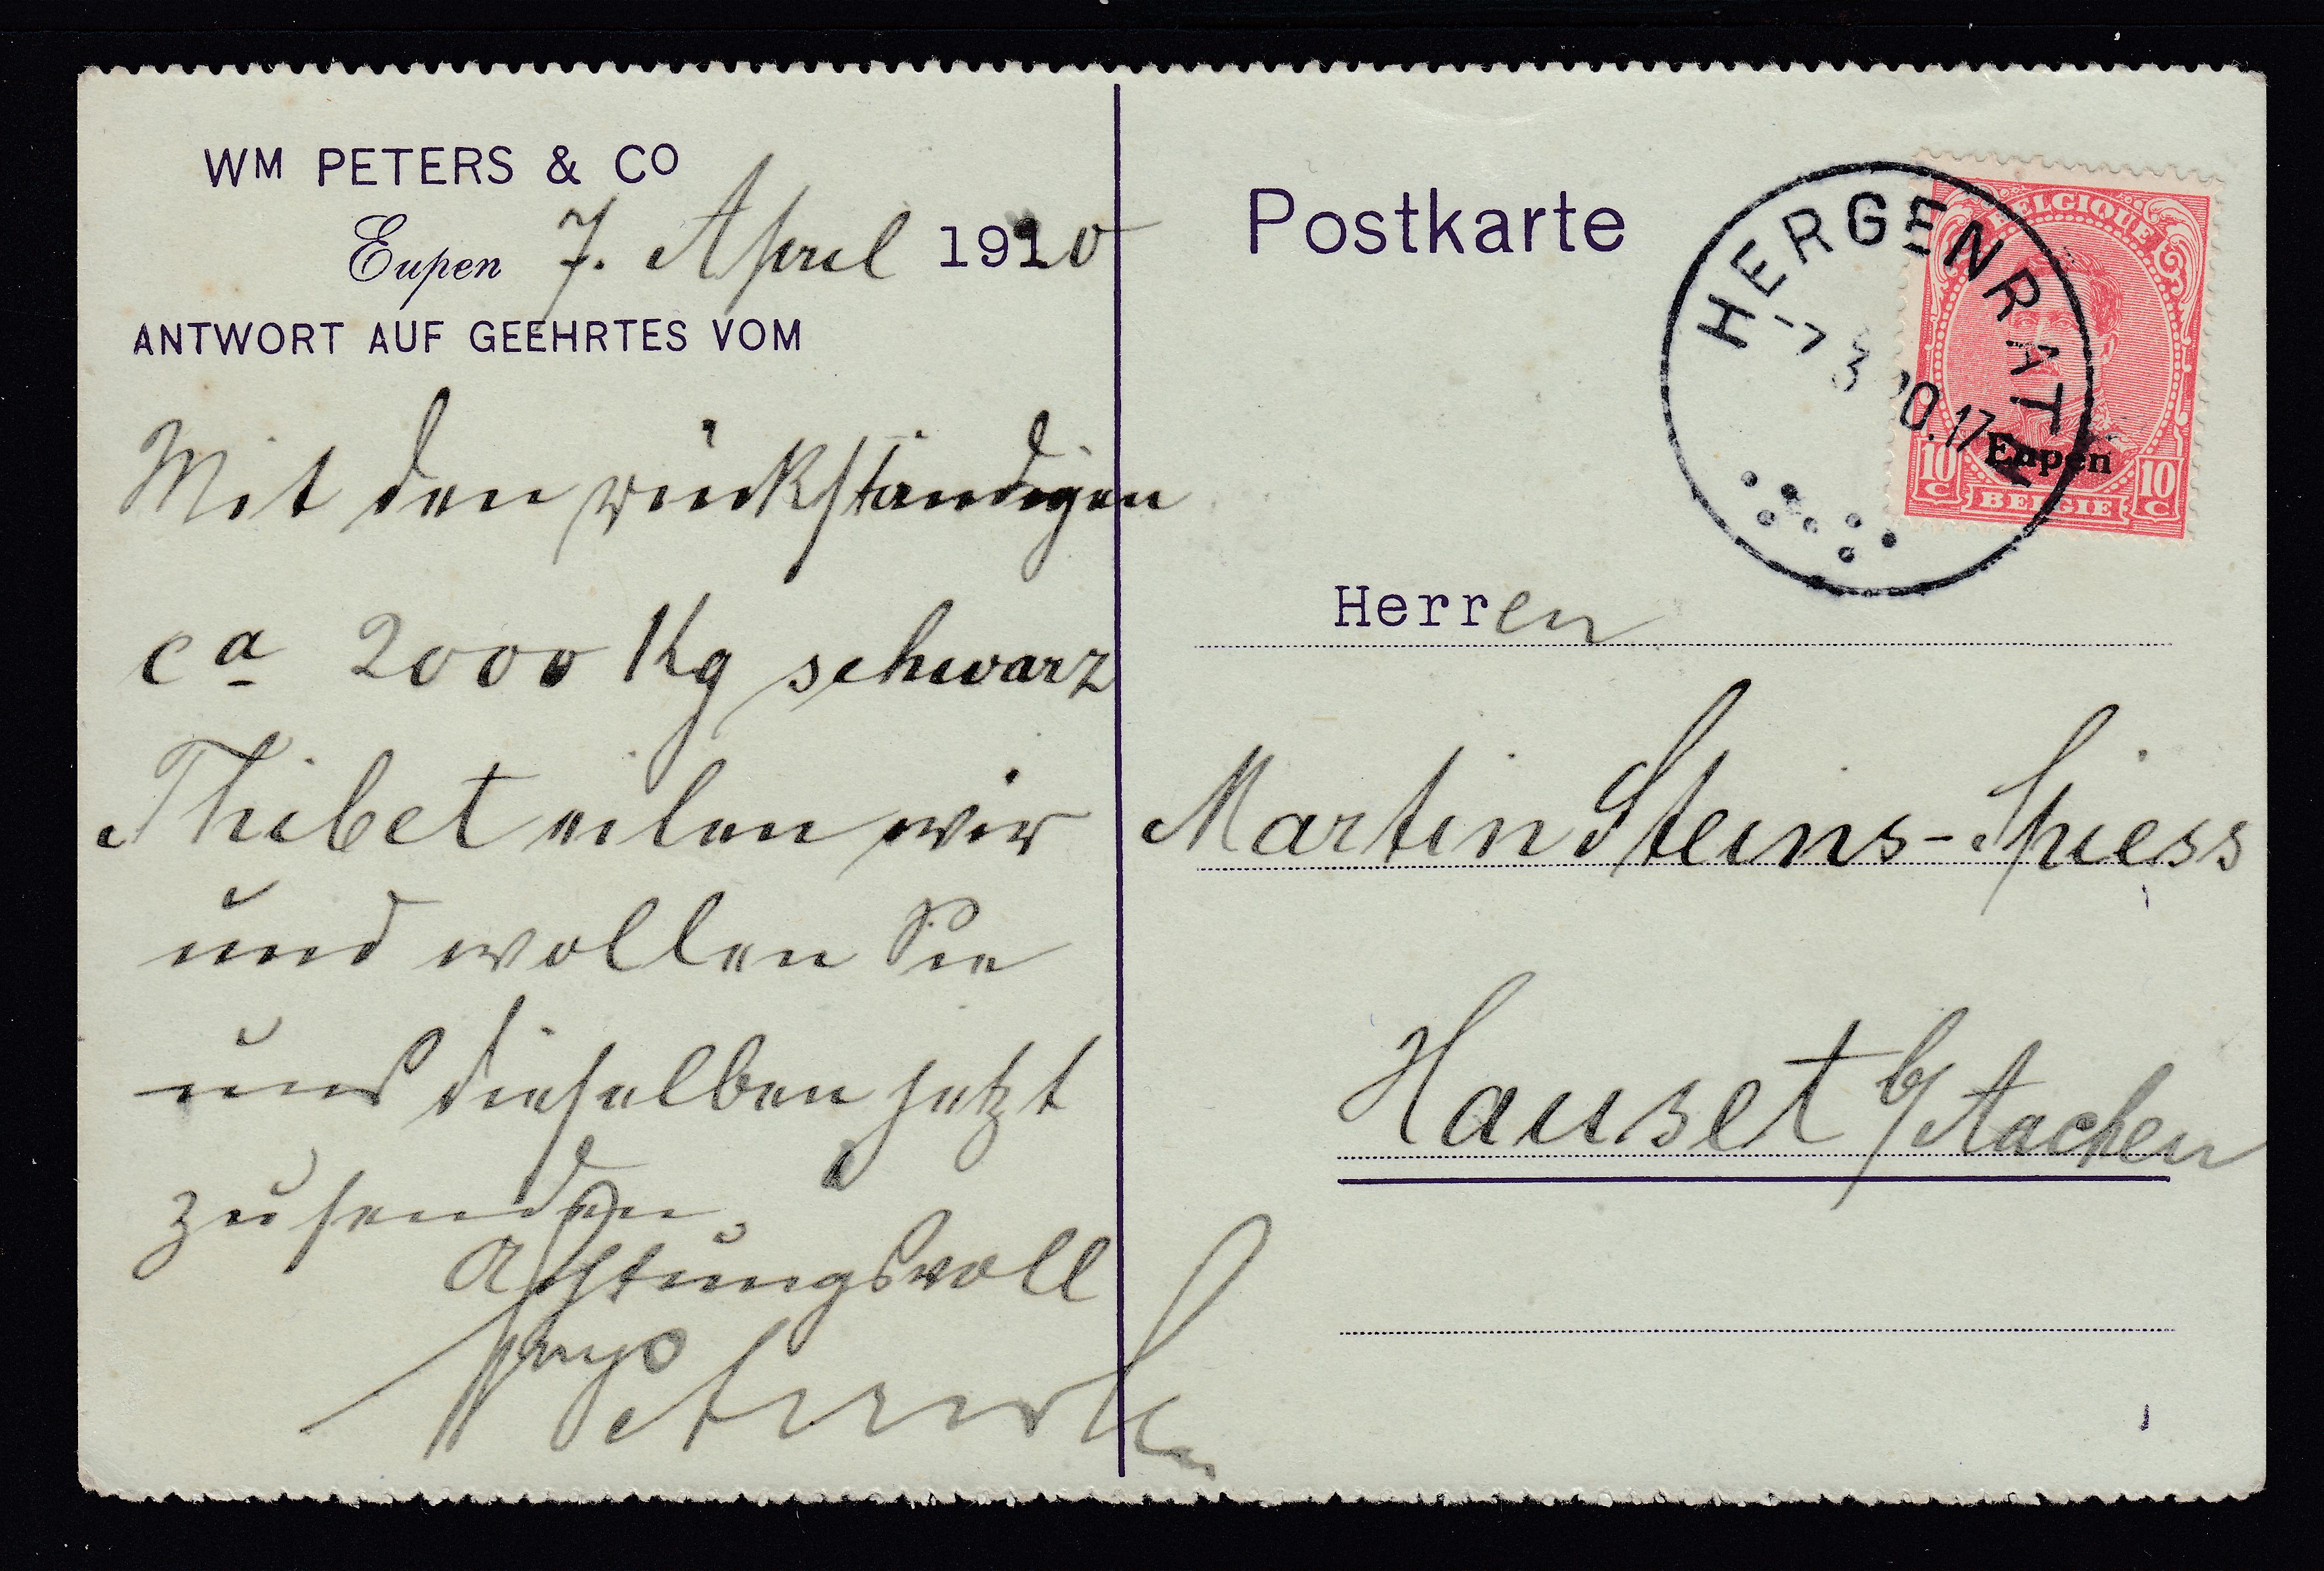 WM PETERS & CO
Eupen 7. April 1920
ANTWORT AUF GEEHRTES VOM
Mit den rückständigen
ca 2000 Kg schwarz
Thibet eilen wir
und wollen Sie
uns dieselben jetzt
zusenden.
Achtungsvoll
Postkarte
HERGENRATH
BELGIQUE
Eupen
10 C BELGIE 10 C
Herren
Martin Steins-Spiess
Hauset b/Aachen